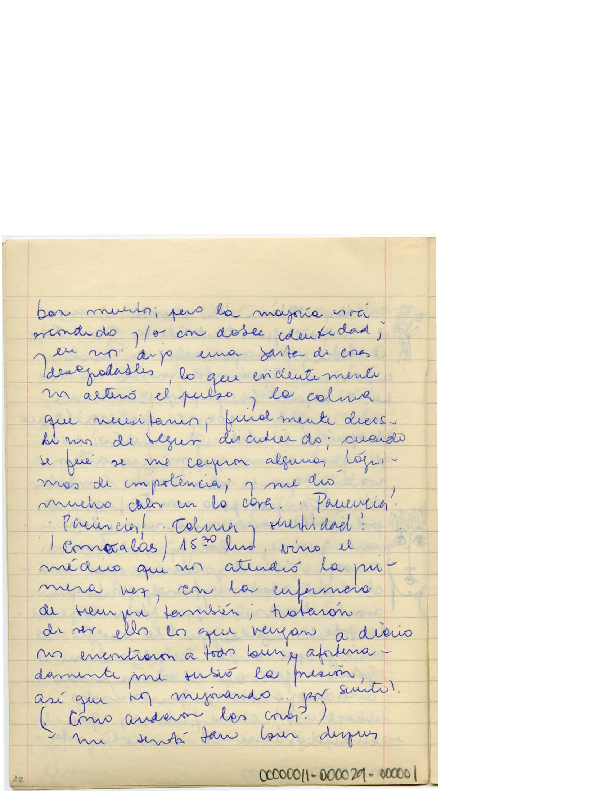 ban muertos; pero la mayoría vivía
escondido y/o con doble identidad;
y en nos dijo una sarta de cosas
desagradables, lo que evidentemente
nos alteró el pulso y la calma
que necesitamos, finalmente decis-
timos de seguir discutiendo; cuando
se fué se me cayeron algunas lágri-
mas de impotencia; y me dió
mucho calor en la cara. Paciencia!
Paciencia! Calma y
15 30 hrs. vino el
médico que nos atendió la pri-
mera vez, con la enfermera
de siempre también, trataron
de ser ellos los que vengan a diario
nos encontraron a todos bien, y afortuna-
damente me subió la presión,
así que voy mejorando. por suerte!
(Cómo andaron las cosas?)
- me sentí tan bien despues
22
00000011-000029-000001